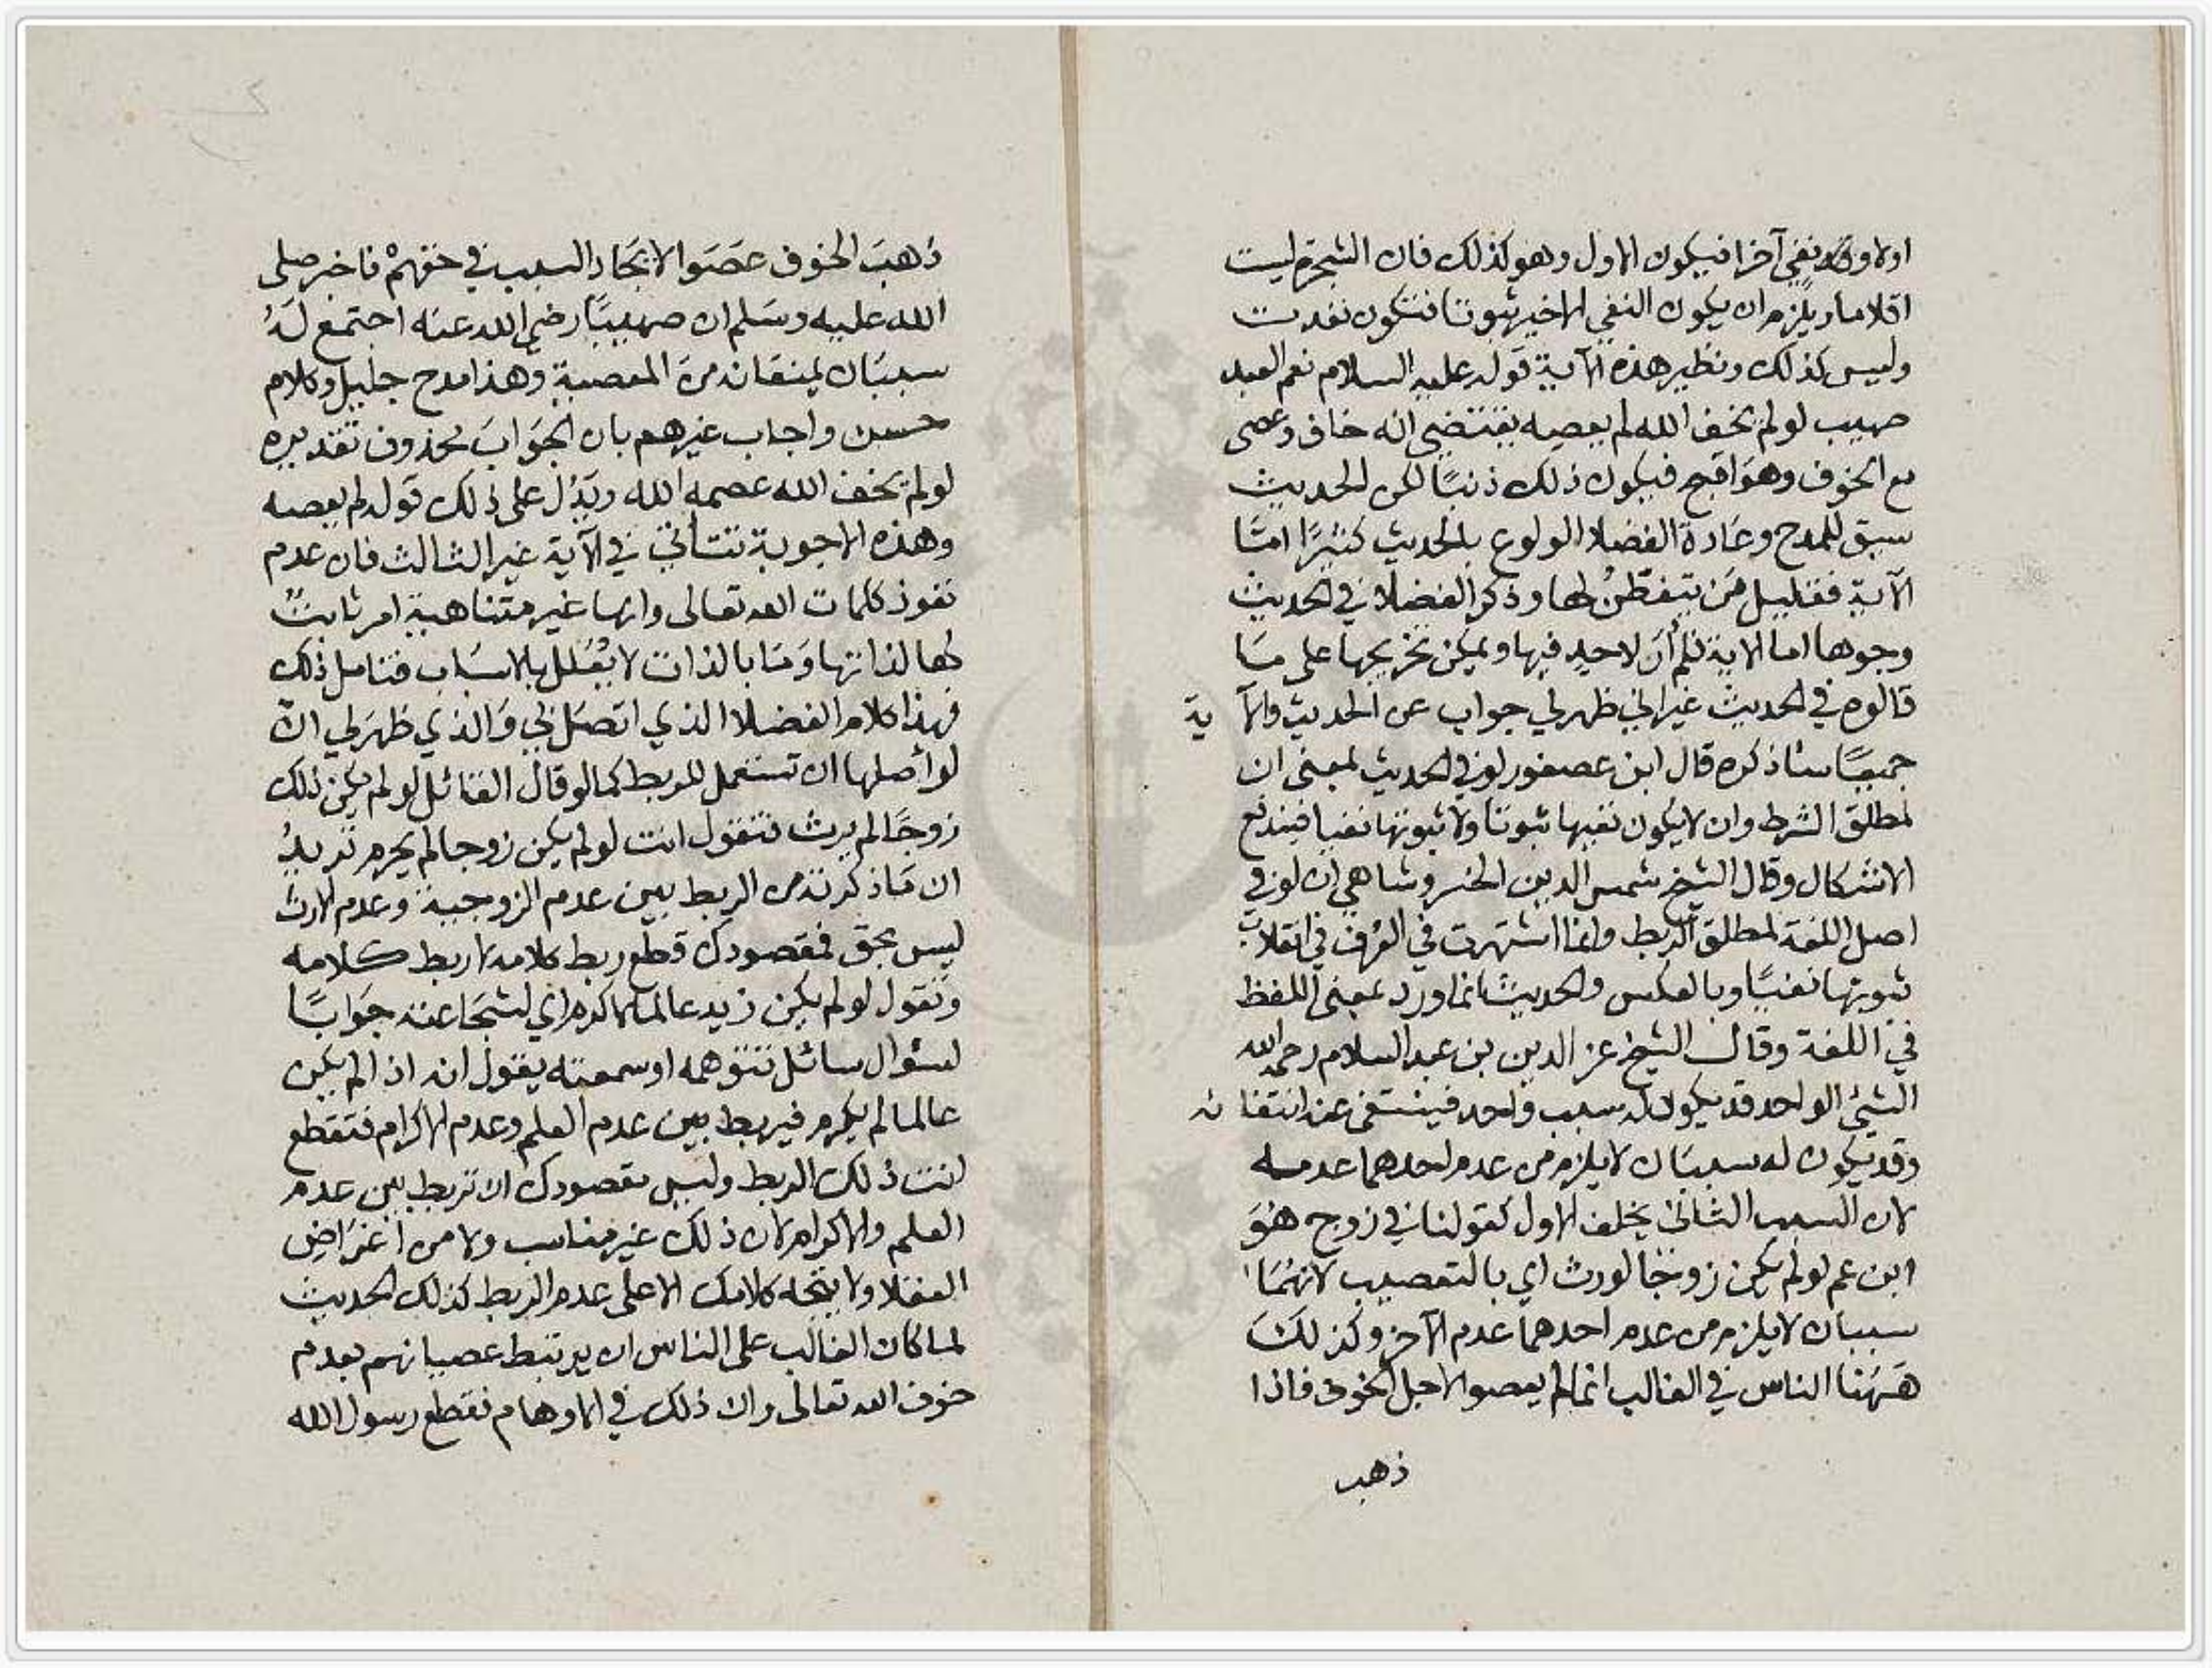 اولا وفيه نفي آخرا فيكون الاول وهو كذلك فان الشجرة ليست
اقلاما ويلزم ان يكون النفي الاخير ثبوتا فتكون نفدت
وليس كذلك ونظير هذه الآية قوله عليه السلام نعم العبد
صهيب لو لم يخف الله لم يعصه يقتضي انه خاف وعصى
مع الخوف وهو اقبح فيكون ذلك ذنبًا لكن الحديث
سبق للمدح وعادة الفضلا الولوع بالحديث كثيرًا امّا
الآية فقليل من يتفطن لها وذكر الفضلا في الحديث
وجوها اما الاية فلم أر لاحد فيها ويمكن تخريجها على ما
قالوه في الحديث غير اني ظهر لي جواب عن الحديث والآ ية
جميعًا ساذكره قال ابن عصفور لو في الحديث بمعنى ان
لمطلق الشرط وان لا يكون نفيها ثبوتا ولا ثبوتها نفيا فيندفع
الاشكال وقال الشيخ شمس الدين الخسروشاهي ان لو في
اصل اللغة لمطلق الربط وانما اشتهرت في العرف في انقلاب
ثبوتها نفيًا وبالعكس والحديث انما ورد بمعنى اللفظ
في اللغة وقال الشيخ عز الدين بن عبد السلام رحمه الله
الشيئ الواحد قد يكون له سبب واحد فينتفي عند انتفا ئه
وقد يكون له سببان لا يلزم من عدم احدهما عدمه
لان السبب الثاني يخلف الاول كقولنا في زوج هو
ابن عم لو لم يكن زوجا لورث اي بالتعصيب لانهما
سببان لا يلزم من عدم احدهما عدم الآخر وكذلك
ههنا الناس في الغالب انما لم يعصوا لاجل الخوف فاذا
ذهب
ذهبَ الخوف عصَوا لاتحاد السبب في حقهمْ فاخبر صلى
الله عليه وسلم ان صهيبًا رضي الله عنه اجتمع لَهُ
سببان يمنعانه من المعصية وهذا مدح جليل وكلام
حسن واجاب غيرهم بان الجوابَ محذوف تقديره
لو لم يخف الله عصمه الله ويَدُل على ذلك قوله لم يعصه
وهذه الاجوبة تتأتى في الآية غير الثالث فان عدم
نفوذ كلمات الله تعالى وانها غير متناهية امر ثابتٌ
لها لذاتها وَما بالذات لا يُعَلل بالاسباب فتامل ذلك
فهذا كلام الفضلا الذي اتصل بي وَالذي ظهر لي انّ
لو أصلها ان تستعمل للربط كما لو قال القائل لو لم يكن ذلك
زوجًا لم يرث فتقول انت لو لم يكن زوجا لم يحرم تريدُ
ان مَا ذكرته من الربط بين عدم الزوجية وعدم الارث
ليس بحق فمقصودك قطع ربط كلامه لا ربط كلامه
وتقول لو لم يكن زيد عالما لاكرم اي لشجاعته جَوابًا
لسؤال سائل تتوهمه او سمعته يقول انه اذا لم يكن
عالما لم يكرم فيربط بين عدم العلم وعدم الاكرام فتقطع
انت ذلك الربط وليس مقصودك ان تربط بين عدم
العلم والاكرام لان ذلك غير مناسب ولا من اغراضِ
العقلا ولا يتجه كلامك الا على عدم الربط كذلك الحديث
لما كان الغالب على الناس ان يرتبط عصيانهم بعدم
خوف الله تعالى وان ذلك في الاوهام فقطع رسول الله